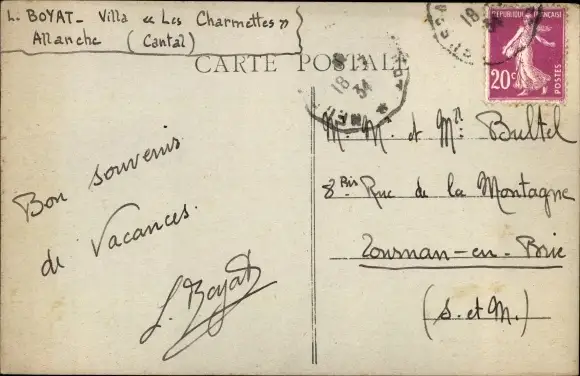 L. BOYAT - Villa « Les Charmettes »
Allanche (Cantal)
CARTE POSTALE
18
34
18
34
RÉPUBLIQUE FRANÇAISE
20c
POSTES
M. M. et Mn Bultel
8 Bis Rue de la Montagne
Tournan-en-Brie
(S. et M.)
Bon souvenir
de Vacances.
L. Boyat